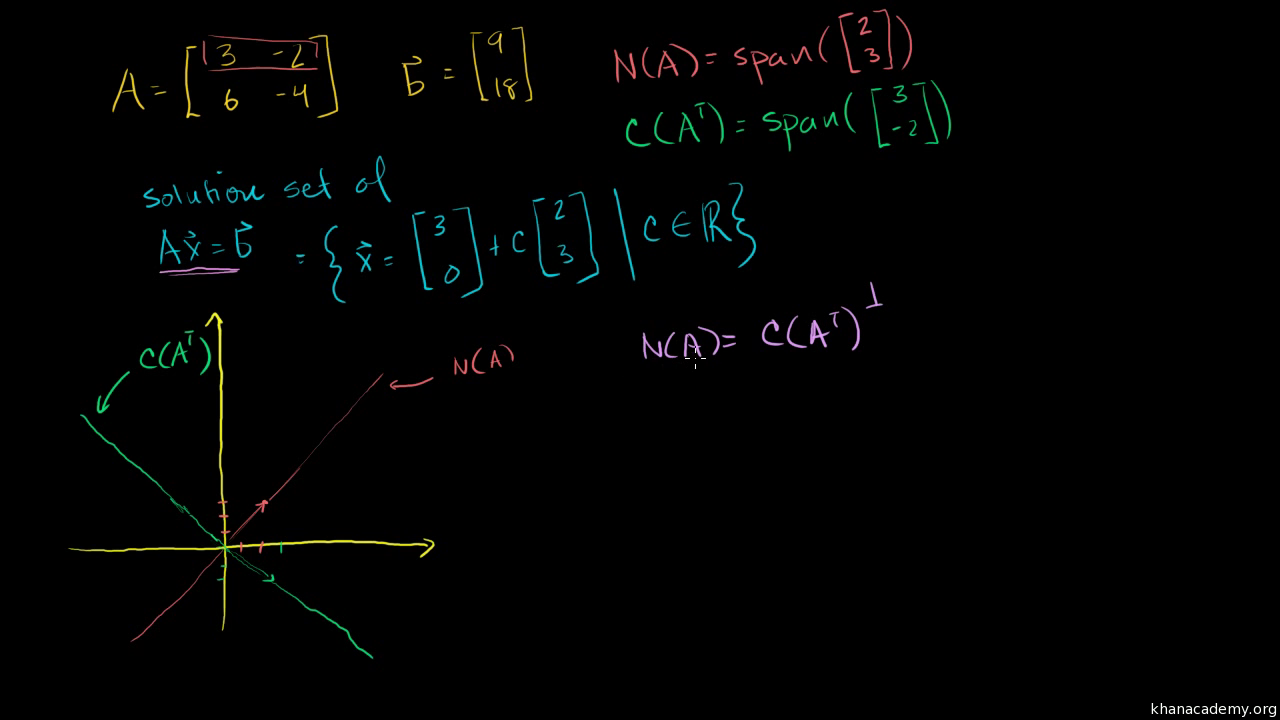 A = [3 -2; 6 -4]
b⃗ = [9; 18]
N(A) = span([2; 3])
C(Aᵀ) = span([3; -2])
solution set of
Ax⃗ = b⃗ = {x⃗ = [3; 0] + c [2; 3] | c ∈ ℝ}
N(A) = C(Aᵀ)^⊥
C(Aᵀ)
N(A)
khanacademy.org